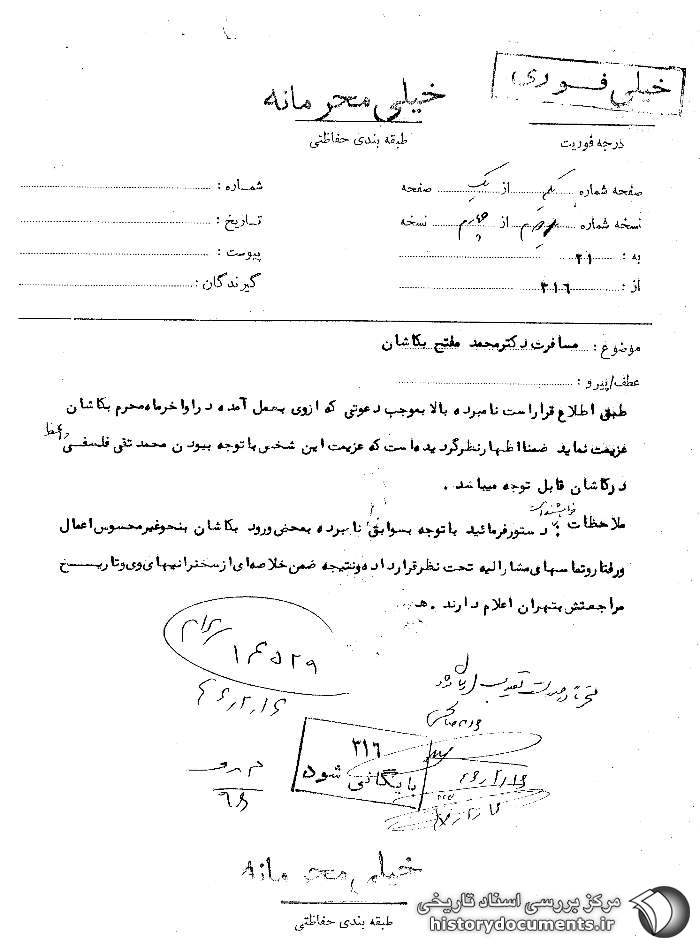 خیلی فوری
خیلی محرمانه
درجه فوریت
طبقه بندی حفاظتی
صفحه شماره یکم از یک صفحه
شماره :
نسخه شماره از چهارم نسخه
تاریخ :
به : ۲۱
پیوست :
از : ۳۱۶
گیرندگان :
موضوع : مسافرت دکتر محمد مفتح بکاشان
عطف/پیرو :
طبق اطلاع قرار است نامبرده بالا بموجب دعوتی که ازوی بعمل آمده در اواخر ماه محرم بکاشان
عزیمت نماید ضمنا اظهار نظر گردیده است که عزیمت این شخص با توجه ببودن محمد تقی فلسفی واعظ
در کاشان قابل توجه میباشد .
ملاحظات : خواهشمند است دستور فرمائید با توجه بسوابق نامبرده بمحض ورود بکاشان بنحو غیر محسوس اعمال
و رفتار و تماسهای مشارالیه تحت نظر قرار داده و نتیجه ضمن خلاصه ای از سخنرانیهای وی و تاریخ
مراجعتش بتهران اعلام دارند . ه
۳۱۶
بایگانی شود
خیلی محرمانه
طبقه بندی حفاظتی
مرکز بررسی اسناد تاریخی
historydocuments.ir